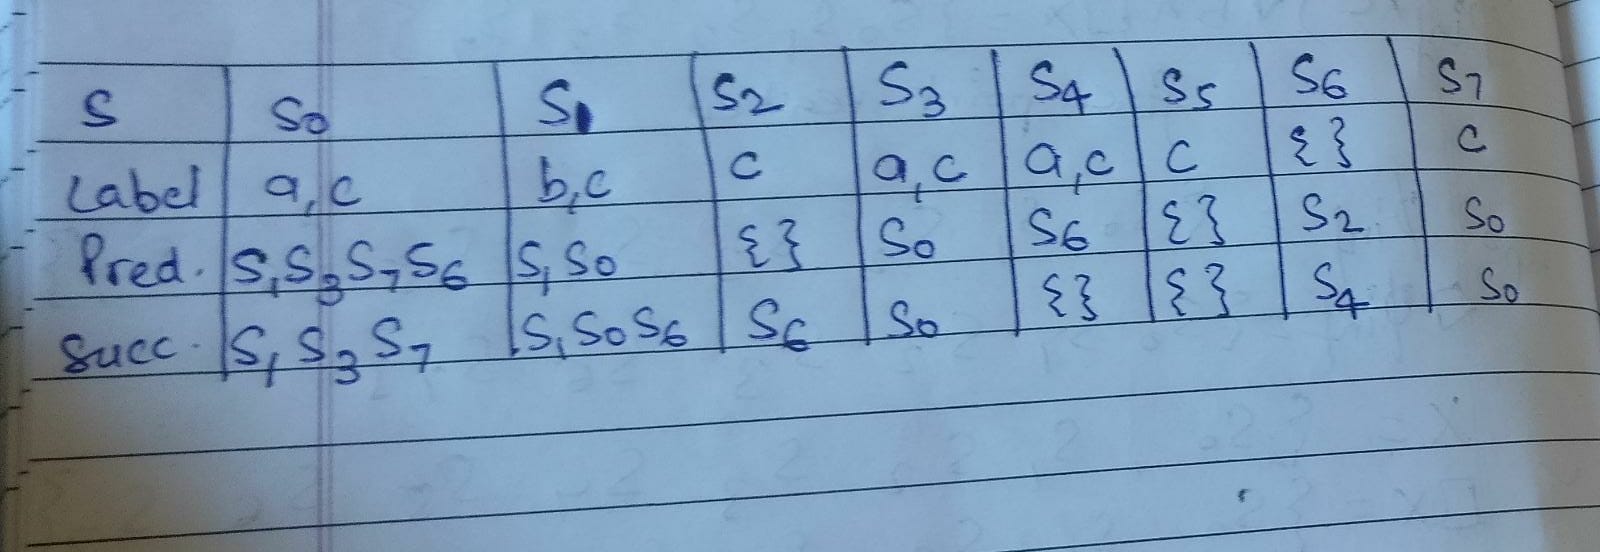 S S0 S1 S2 S3 S4 S5 S6 S7
Label a,c b,c c a,c a,c c { } c
Pred. S1S3S7S6 S1S0 { } S0 S6 { } S2 S0
Succ. S1S3S7 S1S0S6 S6 S0 { } { } S4 S0